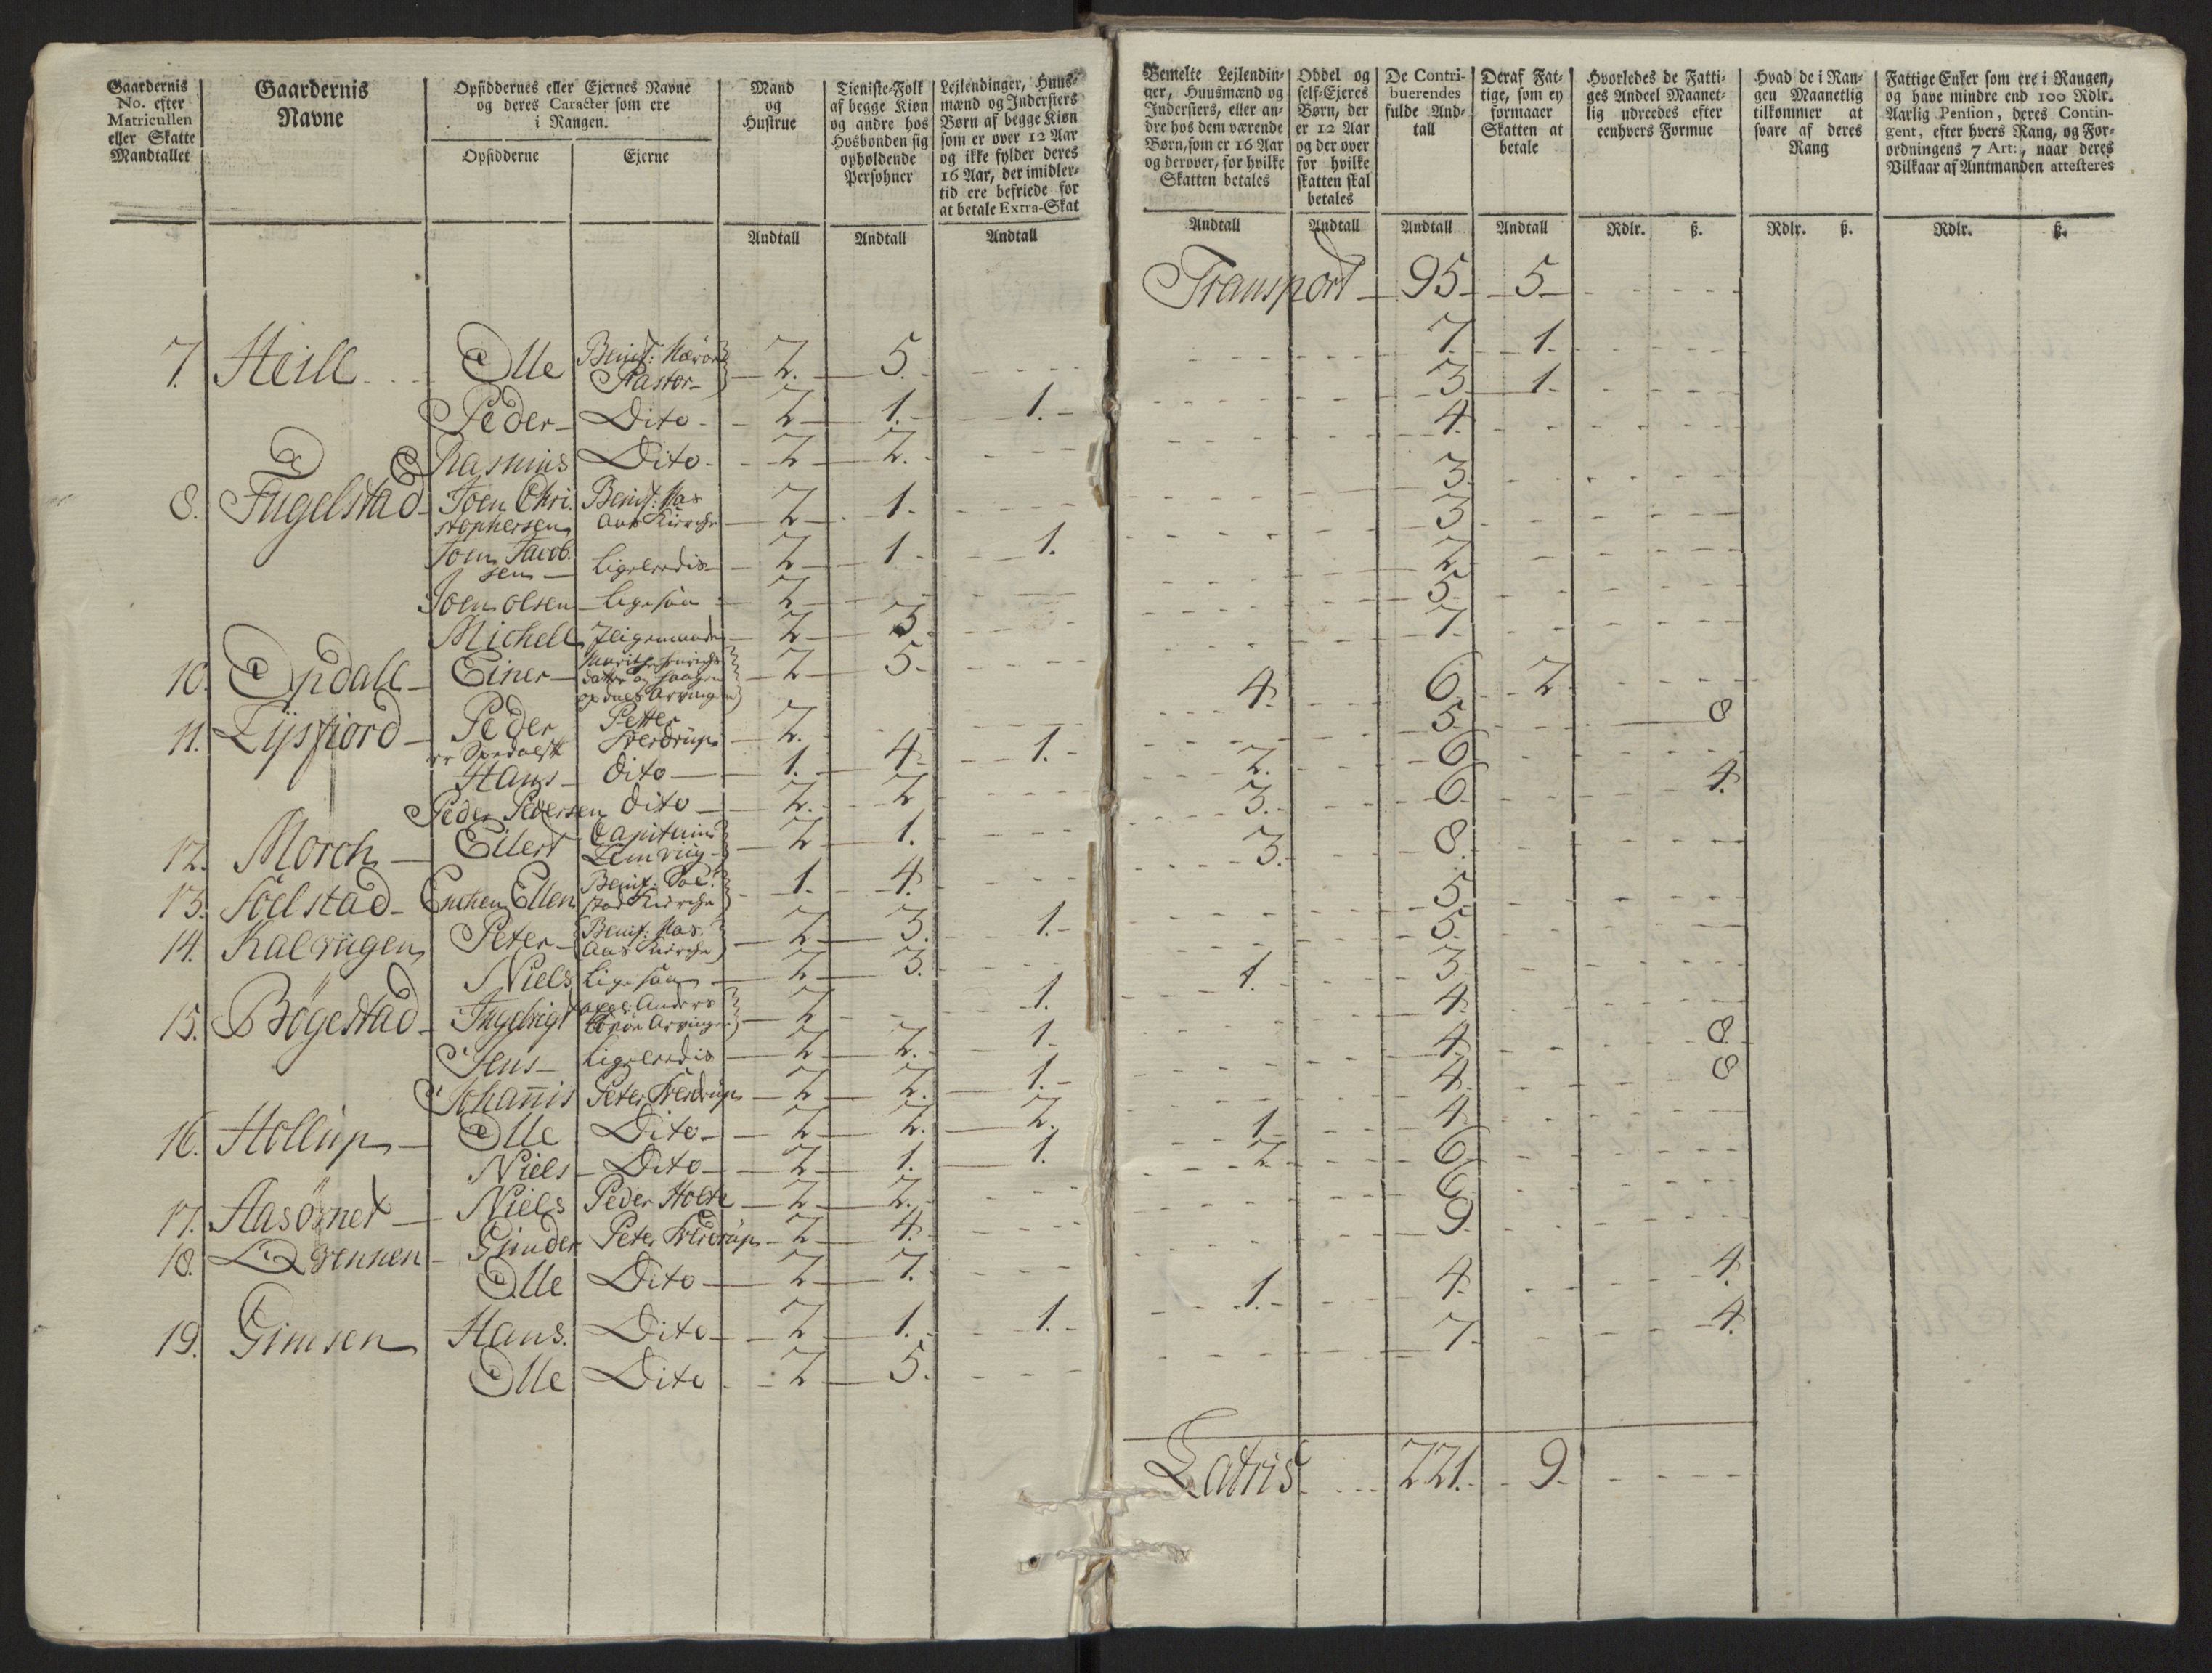 Gaardernis
No. efter
Matricullen
eller Skatte
Mandtallet
Gaardernis
Navne
Opsiddernes eller Ejernes Navne
og deres Caracter som ere
i Rangen.
Opsidderne
Ejerne
Mand
og
Hustrue
Tieniste-Folk
af begge Kiøn
og andre hos
Hosbonden sig
opholdende
Persohner
Lejlendinger, Huus-
mænd og Indersters
Børn af begge Kiøn
som er over 12 Aar
og ikke fylder deres
16 Aar, der imidler-
tid ere befriede for
at betale Extra-Skat
Andtall Andtall Andtall
7. Heill Olle Benif: Nærøe Pastor 2. 5.
Peder Dito 2 1. 1.
Rasmus Dito 2 2.
8. Fugelstad Joen Chri. Benif: Nas
stophersen Aas Kirche 2 1.
Joen Jacob.
sen Ligeledis 2 1 1.
Joen olsen Ligesaa 2
Michell 2 3
10. Opdall Einer 2 5.
11. Lysfiord Peder Petter
Sverdrup 2.
Hans dito 1. 4 1.
Peder Pedersen dito 2. 2
12. Morch Eilert Capitain 2 1.
13. Söelstad Enchen Ellen Benif: Soel
stad Kirche 1. 4.
14. Kalvugen Peter Benif: Nas
Aas Kirche 2 3. 1.
Niels Ligesaa 2 3.
15. Bögestad Ingebrigt Anders
Arvinger 2 1.
Jens Ligeledis 2 2. 1.
Johannis Peter Sverdrup 2 2. 1.
16. Hollup Olle Dito 2 2. 2.
Niels Dito 2 1. 1.
17. Aasörnet Niels Peder Holte 2 2.
18. Qvennen Gunder Peter Sverdrup 2 4.
Olle Dito 2 7.
19. Gimsen Hans. Dito 2 1. 1.
Olle Dito 2 5.
Bemelte Lejlendin-
ger, Huusmænd og
Indersters, eller an-
dre hos dem værende
Børn, som er 16 Aar
og derover, for hvilke
Skatten betales
Oddel og
self-Ejeres
Børn, der
er 12 Aar
og der over
for hvilke
skatten skal
betales
De Contri-
buerendes
fulde And-
tall
Deraf Fat-
tige, som ey
formaaer
Skatten at
betale
Hvorledes de Fatti-
ges Andeel Maanet-
lig udreedes efter
eenhvers Formue
Hvad de i Ran-
gen Maanetlig
tilkommer at
svare af deres
Rang
Fattige Enker som ere i Rangen,
og have mindre end 100 Rdlr.
Aarlig Pension, deres Contin-
gent, efter hvers Rang, og For-
ordningens 7 Art:, naar deres
Vilkaar af Amtmanden attesteres
Andtall Andtall Andtall Andtall Rdlr. ß. Rdlr. ß. Rdlr. ß.
Transport 95 5
7. 1.
3 1.
4.
3.
3
2
5.
7.
4. 6 2
5. 8
2. 6
3. 6 4.
3. 8.
5
5.
1. 3
4.
4. 8
4. 8
4.
1. 6
2 6
9.
4. 4.
1. 7. 4.
Latris 221. 9.